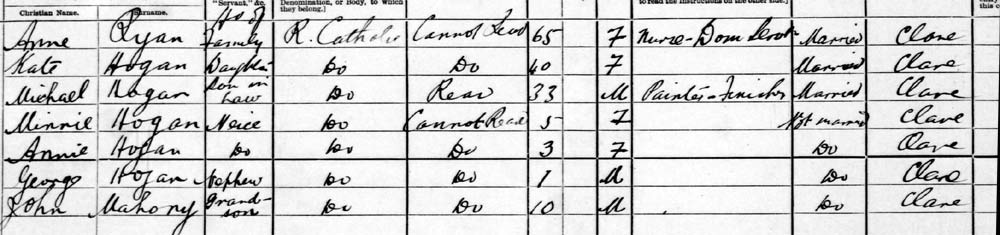 Christian Name. Surname. "Servant," &c. Hd of Denomination, or Body, to which they belong.] to read the Instructions on the other side.]
Anne Ryan Family R. Catholic Cannot Read 65 F Nurse - Dom Married Clare
Kate Hogan Daughter Do Do 40 F Married Clare
Michael Hogan Son in Law Do Read 33 M Painter - Finisher Married Clare
Minnie Hogan Neice Do Cannot Read 5 F Not married Clare
Annie Hogan Do Do Do 3 F Do Clare
George Hogan Nephew Do Do 1 M Do Clare
John Mahony Grand-son Do Do 10 M Do Clare